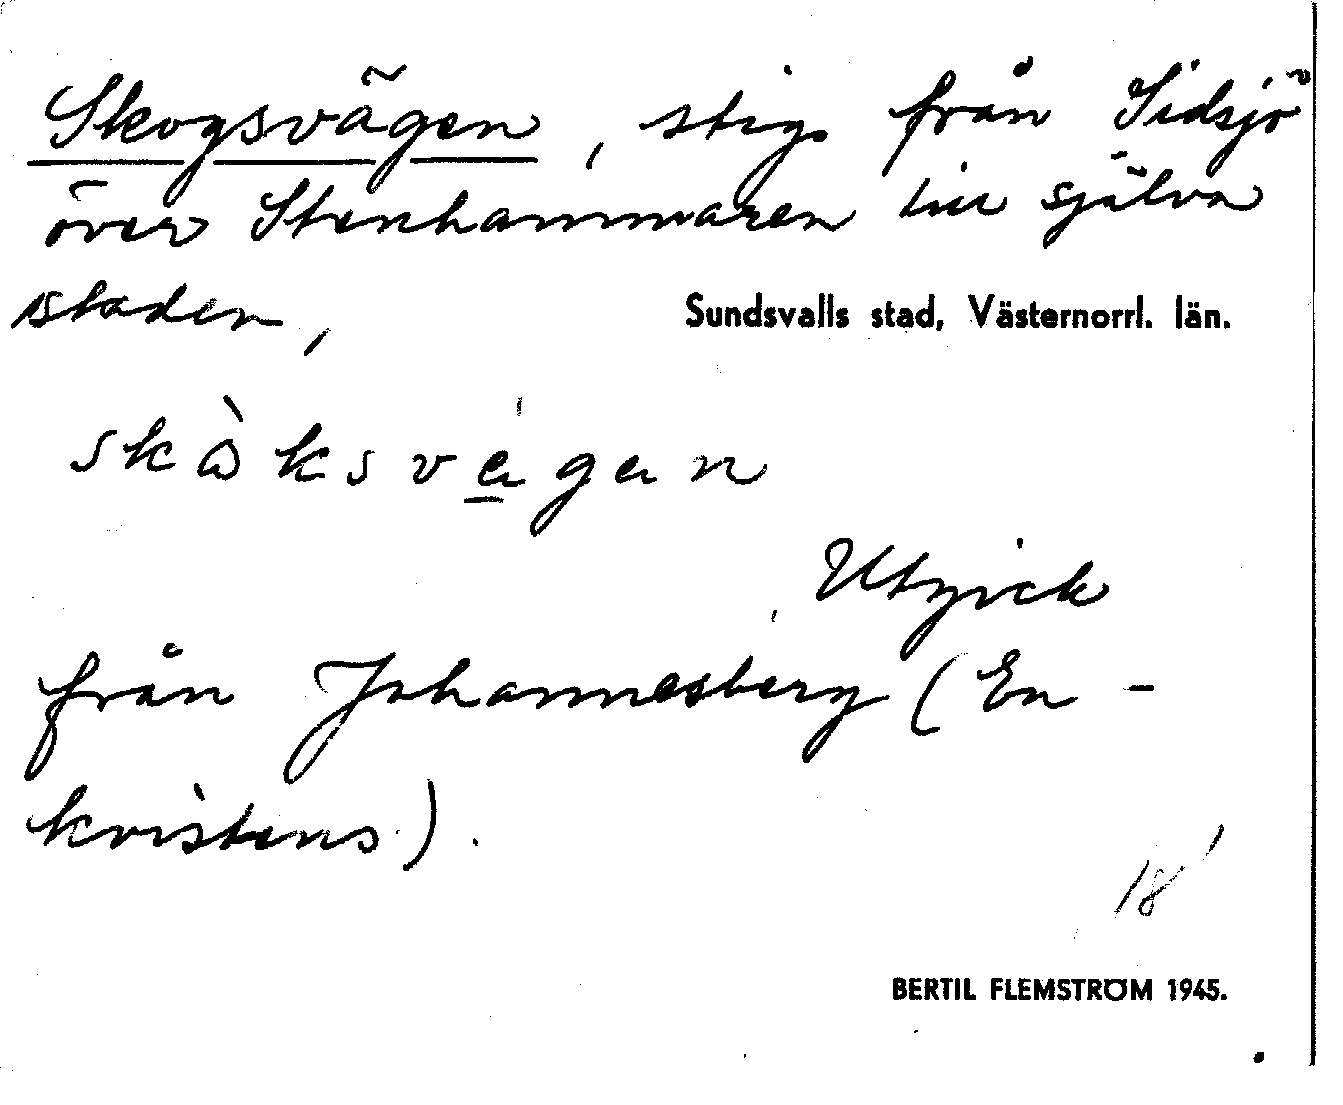 Skogsvägen, stig från Sidsjö
över Stenhammaren till själva
staden,
Sundsvalls stad, Västernorrl. län.
skòksvägan
Utgick
från Johannesberg (En-
kvistens).
18
BERTIL FLEMSTRÖM 1945.